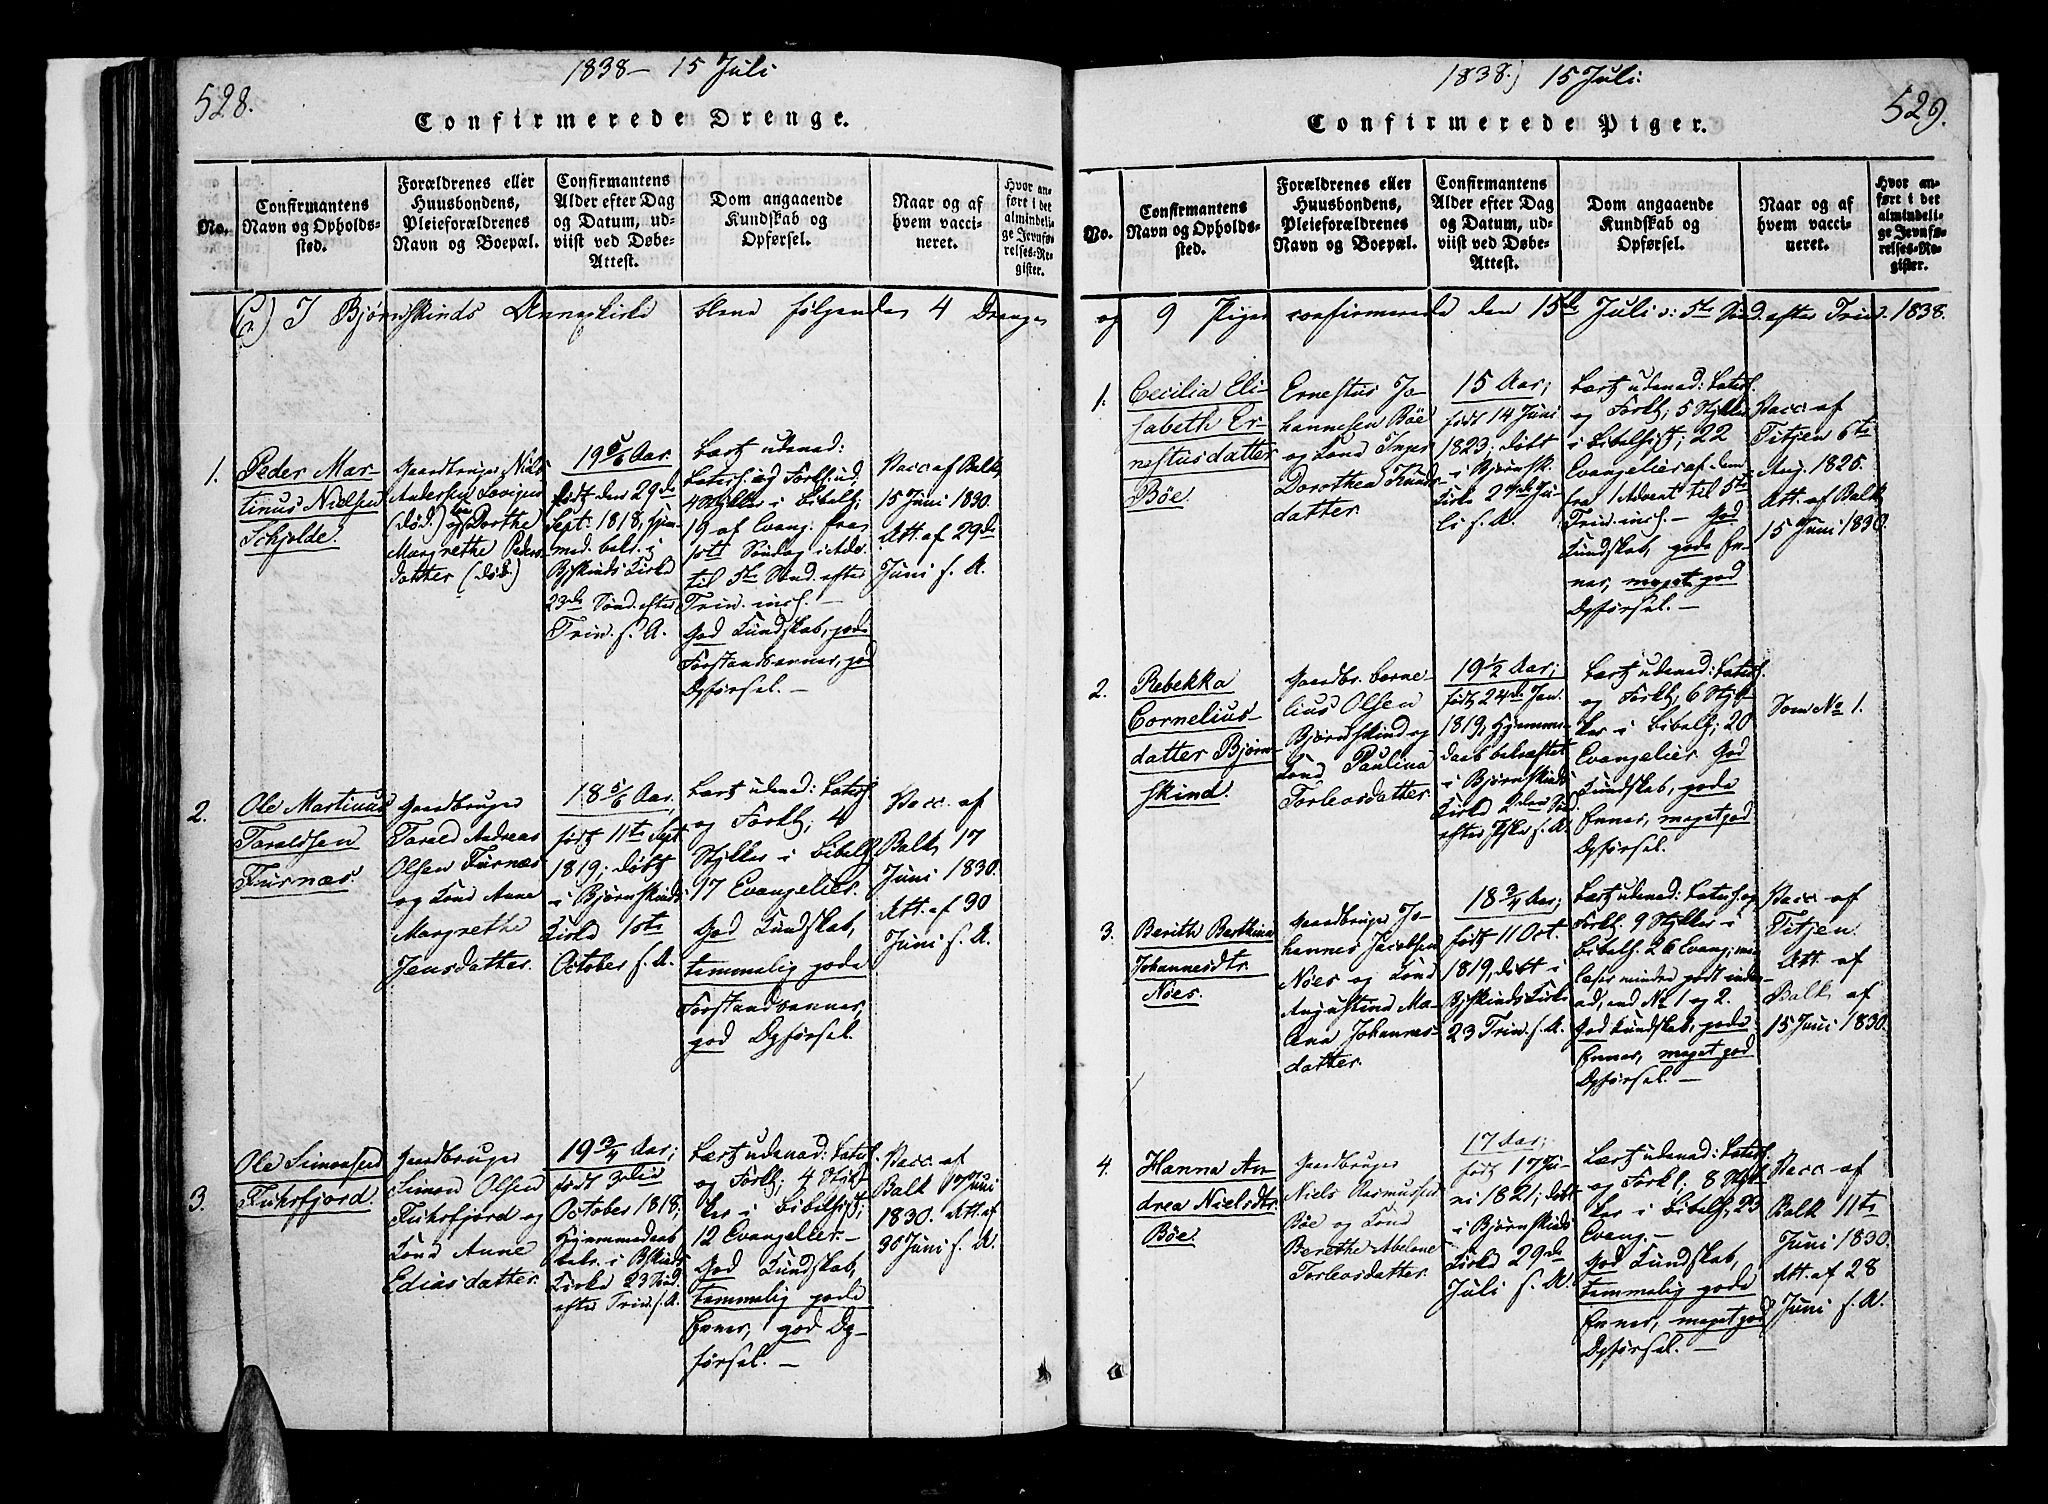 528.
1838 - 15 Juli
Confirmerede Drenge.
No.
Confirmantens
Navn og Opholds-
sted.
Forældrenes eller
Huusbondens,
Pleieforældrenes
Navn og Boepæl.
Confirmantens
Alder efter Dag
og Datum, ud-
viist ved Døbe-
Attest.
Dom angaaende
Kundskab og
Opførsel.
Naar og af
hvem vacci-
neret.
Hvor an-
ført i det
almindeli-
ge Jevnfø-
relses-Re-
gister.
C) I Bjørnskinds Annexkirke bleve følgende 4 Drenge
1.
Peder Mar-
tinus Nielsen
Schjolde.
Gaardbruger Niels
Andersen
(død.) og Dorthe
Margrethe Peders-
datter (død.)
19 5/6 Aar.
født den 29de
Sept. 1818, hjem-
med. bekr. i
Bjskinds Kirke
23de Sønd. efter
Trin. s. A.
Lært udenad:
Catech. og Forkl. ud,
4 Stykker i Bibelh.,
19 af Evang: fra
1ste Søndag i Adv.
til 5te Sønd. efter
Trin. incl. -
God Kundskab, gode
Forstandsevner, god
Opførsel. -
Vacc. af Balk,
15 Juni 1830
Att. af 29de
Juni s. A.
2.
Ole Martinus
Taraldsen
Furnæs.
Gaardbruger
Tarald Andreas
Olsen Furnæs
og Kone Anne
Margrethe
Jensdatter.
18 5/6 Aar,
født 11te Sept.
1819; døbt
i Bjørnskinds
Kirke 1ste
October s. A.
Lært udenad: Catech.
og Forkl; 4
Stykker i Bibelh.
17 Evangelier.
God Kundskab,
temmelig gode
Forstandsevner,
god Opførsel.
Vacc. af
Balk 17
Juni 1830.
Att. af 30
Juni s. A.
3.
Ole Simonsen
Fuhrfjord.
Gaardbruger
Simon Olsen
Fuhrfjord og
Kone Anne
Ediasdatter.
19 3/4 Aar;
født 3die
October 1818;
Hjemmedaab
bekr. i Bskinds
Kirke 23 Sønd.
efter Trin. s. A.
Lært udenad: Catech.
og Forkl; 4 Styk-
ker i Bibelhist;
12 Evangelier. -
God Kundskab,
temmelig gode
Evner, god Op-
førsel. -
Vacc. af
Balk 17 Juni
1830. Att. af
30 Juni s. A.
1838.) 15 Juli:
529.
Confirmerede Piger.
No.
Confirmantens
Navn og Opholds-
sted.
Forældrenes eller
Huusbondens,
Pleieforældrenes
Navn og Boepæl.
Confirmantens
Alder efter Dag
og Datum, ud-
viist ved Døbe-
Attest.
Dom angaaende
Kundskab og
Opførsel.
Naar og af
hvem vacci-
neret.
Hvor an-
ført i det
almindeli-
ge Jevnfø-
relses-Re-
gister.
og 9 Piger confirmerede den 15de Juli o: 5te Sønd. efter Trin. 1838.
1.
Cecilia Eli-
sabeth Er-
nestusdatter
Bøe.
Ernestus Jo-
hannesen Bøe
og Kone Inger
Dorothea Knuds-
datter.
15 Aar;
født 14 Juni
1823; døbt
i Bjørnsk.
Kirke 27de Ju-
li s. A.
Lært udenad: Catech.
og Forkl; 5 Stykker
i Bibelhist; 22
Evangelier af dem
fra 1 Advent til 5te
Trin. incl. - God
Kundskab, gode Ev-
ner, meget god
Opførsel. -
Vacc. af
Titjen 6te
Aug. 1825.
Att. af Balk
15 Juni 1830.
2.
Rebekka
Cornelius-
datter Bjørn-
skind.
Gaardbr. Corne-
lius Olsen
Bjørnskind og
Kone Paulina
Torleosdatter.
19 1/2 Aar;
født 24de Jan.
1819; Hjemme-
daab bekræftet
i Bjørnskinds
Kirke 2den Sønd.
efter Paaske s. A.
Lært udenad: Catech.
og Forkl; 6 Styk-
ker i Bibelh; 20
Evangelier. God
Kundskab, gode
Evner, meget god
Opførsel. -
Som No 1.
3.
Berith Berthina
Johannesdtr.
Nöes.
Gaardbruger Jo-
hannes Jacobsen
Nöes og Kone
Augustina Ma-
lena Johannes-
datter.
18 3/4 Aar;
født 11 Oct.
1819, døbt i
Bjskinds Kirke
23 Trin. s. A.
Lært udenad: Catech. og
Forkl. 9 Stykker i
Bibelh. 26 Evang; men
læser mindre godt inden-
ad, end No 1 og 2.
God Kundskab, gode
Evner, meget god
Opførsel. -
Vacc. af
Titjen.
Att. af
Balk af
15 Juni 1830.
4.
Hanna An-
drea Nielsdtr.
Bøe.
Gaardbruger
Niels Rasmussen
Bøe og Kone
Berethe Abelone
Torleosdatter.
17 Aar;
født 17 Ju-
ni 1821; døbt
i Bjørnskinds
Kirke 29de
Juli s. A.
Lært udenad: Catech.
og Forkl. 8 Styk-
ker i Bibelh; 23
Evang. -
God Kundskab,
temmelig gode
Evner, meget god
Opførsel. -
Vacc. af
Balk 11te
Juni 1830.
Att. af 28
Juni s. A.